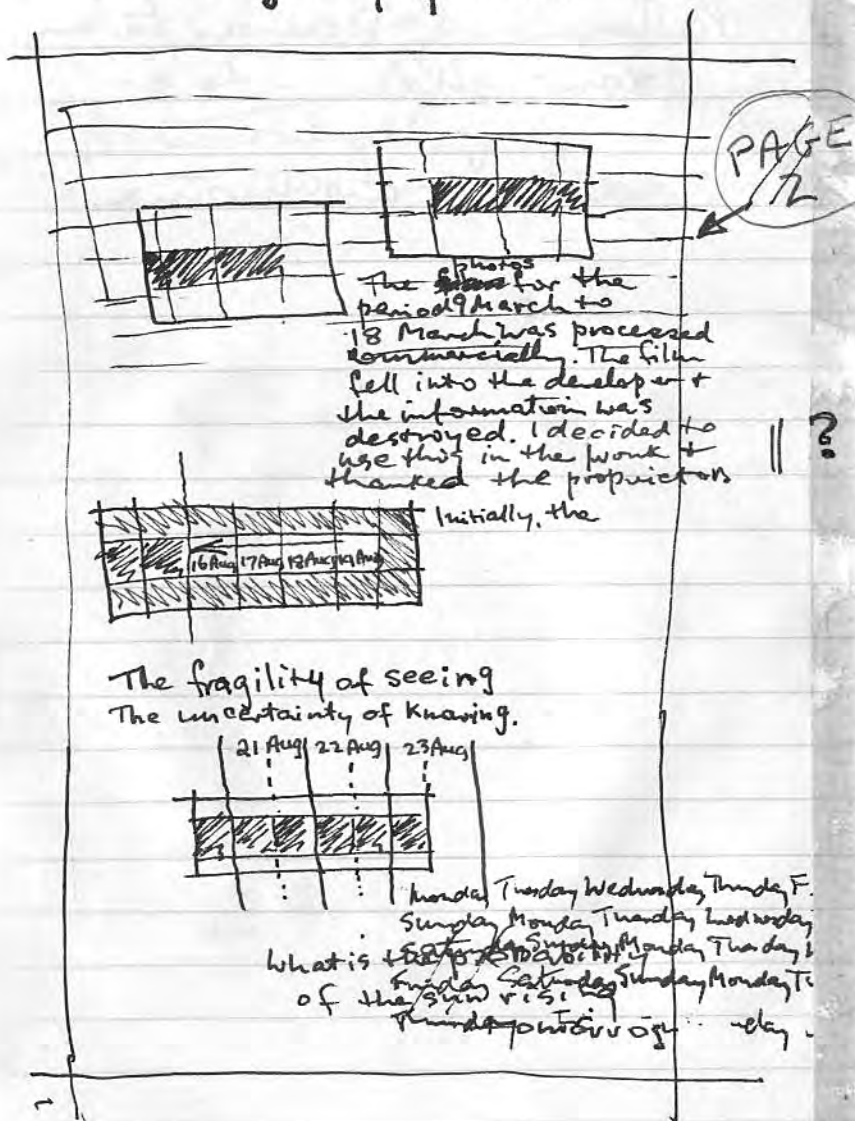 PAGE
2
photos
The for the
period 9 March to
18 March was processed
commercially. The film
fell into the developer +
the information was
destroyed. I decided to
use this in the work +
thanked the proprietors
Initially, the
16 Aug 17 Aug 18 Aug 19 Aug
The fragility of seeing
The uncertainty of knowing.
21 Aug 22 Aug 23 Aug
Monday Tuesday Wednesday Thursday F.
Sunday Monday Tuesday Wednesday
Saturday Sunday Monday Tuesday
What is the probability
Friday Saturday Sunday Monday Tu
of the sun rising
tomorrow
?